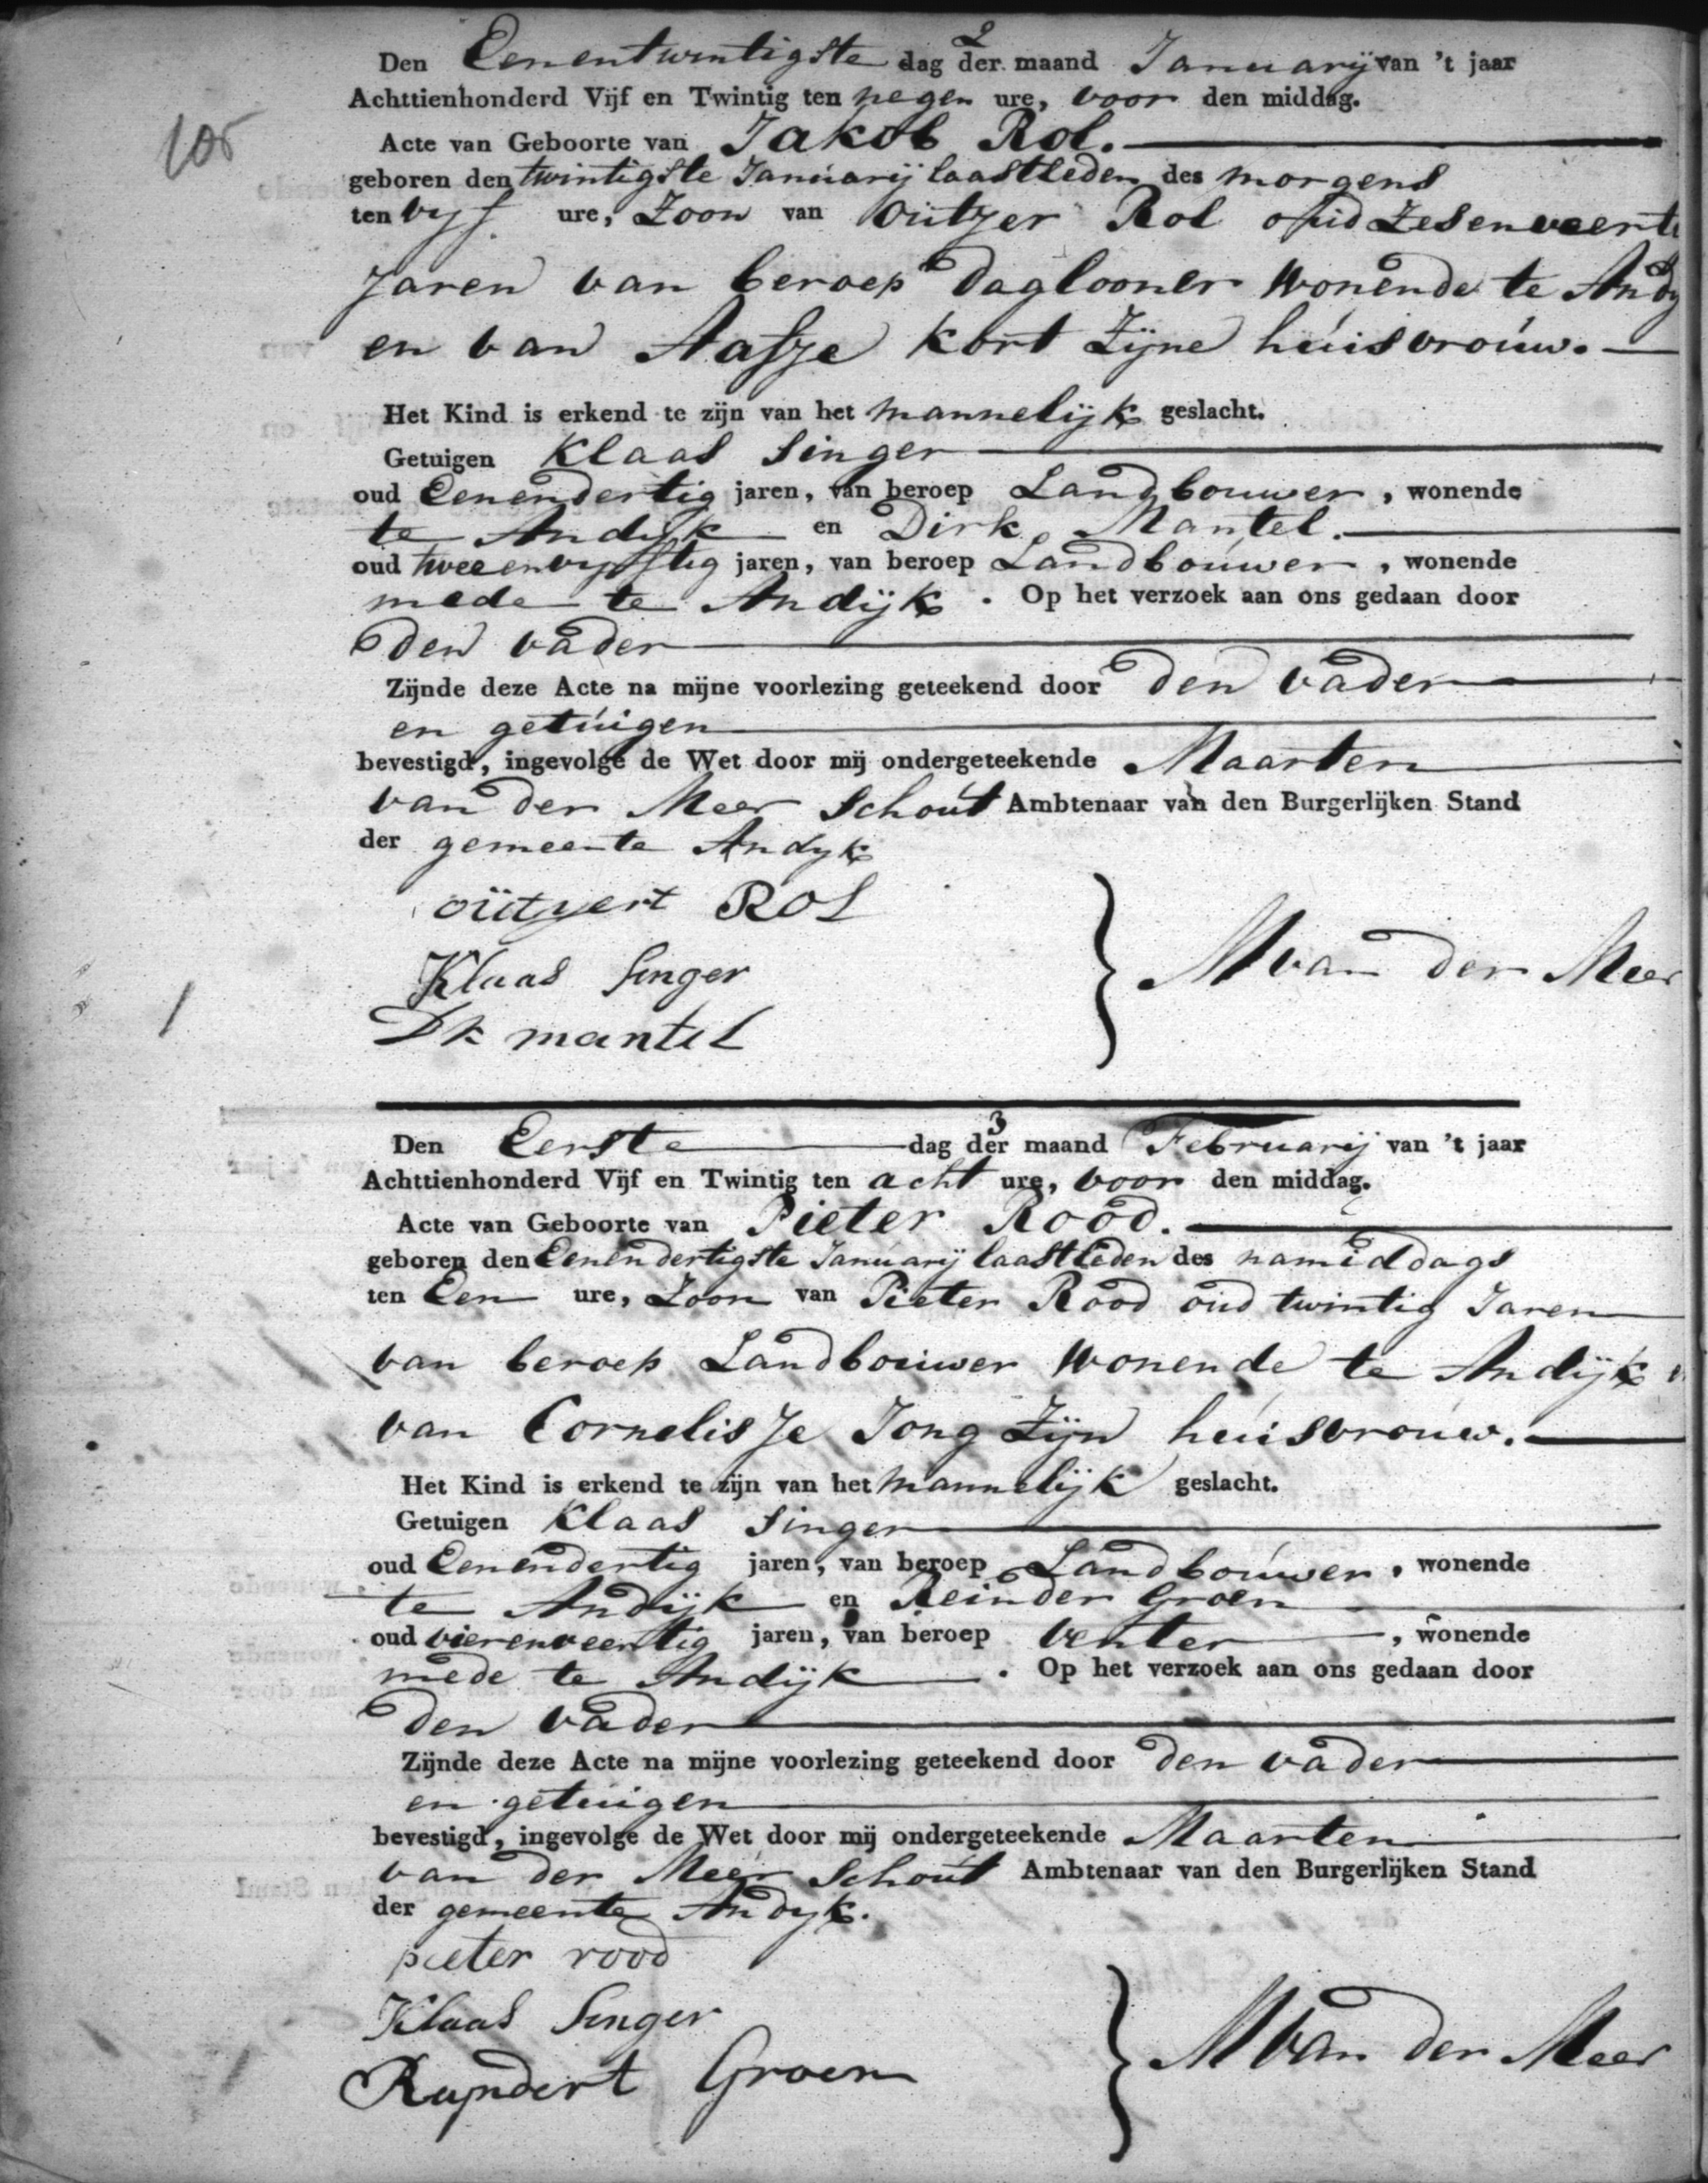 2
Den Eenentwintigste dag der maand Januarij van 't jaar
Achttienhonderd Vijf en Twintig ten negen ure, voor den middag.
105
Acte van Geboorte van Jakob Rol.
geboren den twintigste Januarij laastleden des morgens
ten vyf ure, Zoon van Outger Rol oud Zesenveerti
Jaren van beroep Daglooner Wonende te Andy
en van Aafje Kort Zijne huisvrouw.
Het Kind is erkend te zijn van het mannelijk geslacht.
Getuigen Klaas Singer
oud Eenendertig jaren, van beroep Landbouwer, wonende
te Andijk en Dirk Mantel.
oud tweeenvyftig jaren, van beroep Landbouwer, wonende
mede te Andijk. Op het verzoek aan ons gedaan door
den vader
Zijnde deze Acte na mijne voorlezing geteekend door den vader
en getuigen
bevestigd, ingevolge de Wet door mij ondergeteekende Maarten
van der Meer Schout Ambtenaar van den Burgerlijken Stand
der gemeente Andyk
outgert Rol
Klaas Singer
M van der Meer
Dk mantel
3
Den Eerste dag der maand Februarij van 't jaar
Achttienhonderd Vijf en Twintig ten acht ure, voor den middag.
Acte van Geboorte van Pieter Rood.
geboren den Eenendertigste Januarij laastleden des namiddags
ten Een ure, Zoon van Pieter Rood oud twintig Jaren
van beroep Landbouwer Wonende te Andijk
van Cornelisje Jong Zijn huisvrouw.
Het Kind is erkend te zijn van het mannelijk geslacht.
Getuigen Klaas Singer
oud Eenendertig jaren, van beroep Landbouwer, wonende
te Andijk en Reinder Groen
oud vierenveertig jaren, van beroep venter, wonende
mede te Andijk. Op het verzoek aan ons gedaan door
den vader
Zijnde deze Acte na mijne voorlezing geteekend door den vader
en getuigen
bevestigd, ingevolge de Wet door mij ondergeteekende Maarten
van der Meer Schout Ambtenaar van den Burgerlijken Stand
der gemeente Andyk.
pieter rood
Klaas Singer
M van der Meer
Ryndert Groen